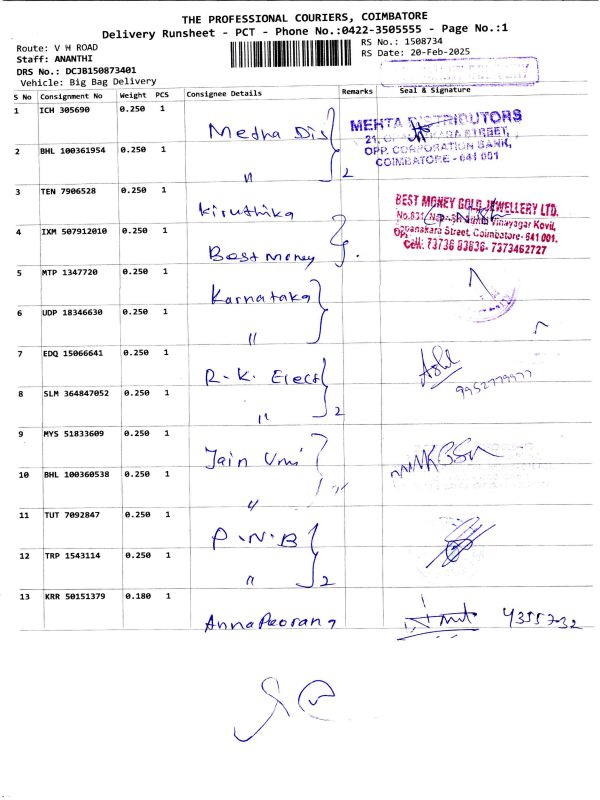 THE PROFESSIONAL COURIERS, COIMBATORE
Delivery Runsheet - PCT - Phone No.:0422-3505555 - Page No.:1
Route: V H ROAD
RS No.: 1508734
Staff: ANANTHI
RS Date: 20-Feb-2025
DRS No.: DCJB150873401
Vehicle: Big Bag Delivery
S No Consignment No Weight PCS Consignee Details Remarks Seal & Signature
1 ICH 305690 0.250 1 Metha Dis
MEHTA DISTRIBUTORS
STREET,
OPP. CORPORATION BANK,
COIMBATORE - 641 001
2 BHL 100361954 0.250 1 " 2
3 TEN 7906528 0.250 1 Kiruthika
BEST MONEY GOLD JEWELLERY LTD.
No.831, Vinayagar Kovil,
Street, Coimbatore- 641 001.
Cell: 73736 83636- 7373462727
4 IXM 507912010 0.250 1 Best Money
5 MTP 1347720 0.250 1 Karnataka
6 UDP 18346630 0.250 1 "
7 EDQ 15066641 0.250 1 R.K. Elect
8 SLM 364847052 0.250 1 " 2
9 MYS 51833609 0.250 1 Jain Uni
10 BHL 100360538 0.250 1 "
11 TUT 7092847 0.250 1 P.N.B
12 TRP 1543114 0.250 1 " 2
13 KRR 50151379 0.180 1 4355732